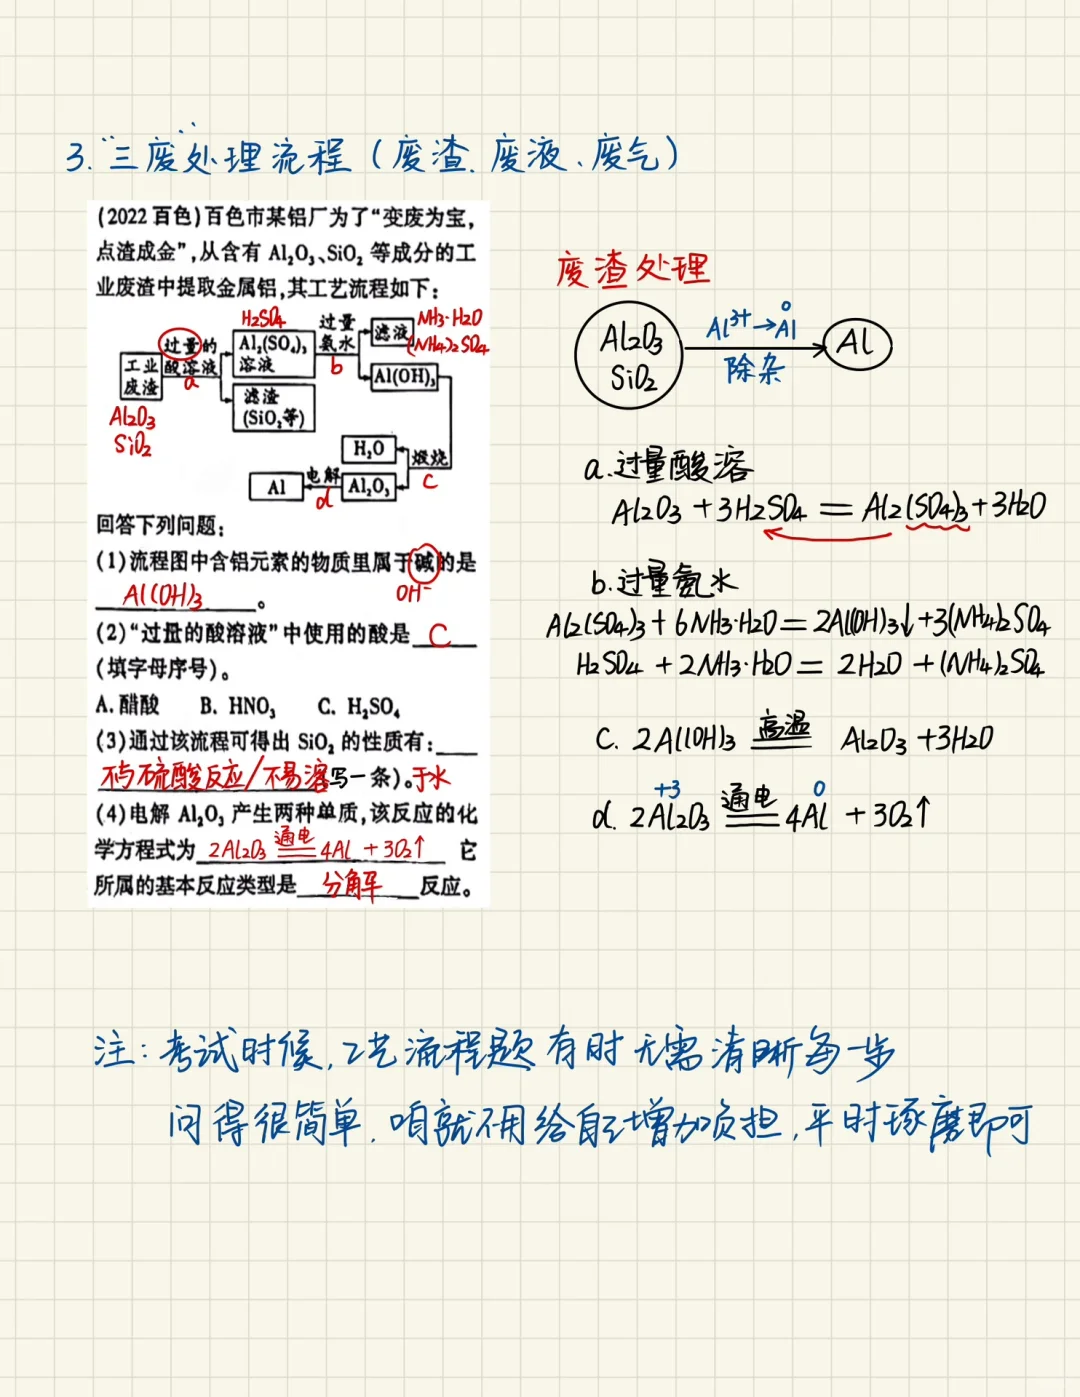 3."三废"处理流程（废渣、废液、废气）
(2022百色)百色市某铝厂为了“变废为宝,
点渣成金”,从含有 Al₂O₃、SiO₂ 等成分的工
业废渣中提取金属铝,其工艺流程如下:
工业
废渣
Al₂O₃
SiO₂
过量的
酸溶液
a
H₂SO₄
Al₂(SO₄)₃
溶液
滤渣
(SiO₂等)
过量
氨水
b
滤液
NH₃·H₂O
(NH₄)₂SO₄
Al(OH)₃
煅烧
c
H₂O
Al₂O₃
电解
d
Al
回答下列问题:
(1)流程图中含铝元素的物质里属于碱的是
OH⁻
Al(OH)₃。
(2)“过量的酸溶液”中使用的酸是 C
(填字母序号)。
A.醋酸 B. HNO₃ C. H₂SO₄
(3)通过该流程可得出 SiO₂ 的性质有:
不与硫酸反应/不易溶写一条)。于水
(4)电解 Al₂O₃ 产生两种单质,该反应的化
学方程式为 2Al₂O₃ 通电 4Al + 3O₂↑ 它
所属的基本反应类型是 分解 反应。
废渣处理
Al₂O₃
SiO₂
Al³⁺→Al
0
除杂
Al
a.过量酸溶
Al₂O₃ + 3H₂SO₄ = Al₂(SO₄)₃ + 3H₂O
b.过量氨水
Al₂(SO₄)₃ + 6NH₃·H₂O = 2Al(OH)₃↓ + 3(NH₄)₂SO₄
H₂SO₄ + 2NH₃·H₂O = 2H₂O + (NH₄)₂SO₄
c. 2Al(OH)₃ 高温 Al₂O₃ + 3H₂O
+3 0
d. 2Al₂O₃ 通电 4Al + 3O₂↑
注:考试时候,工艺流程题有时无需清晰每一步
问得很简单,咱就不用给自己增加负担,平时琢磨即可